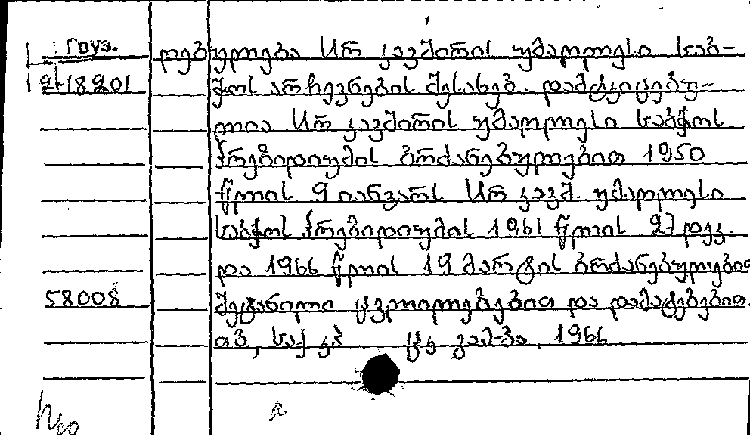 Груз.
2-18201
დებულება სსრ კავშირის უმაღლესი საბ-
ჭოს არჩევნების შესახებ. დამტკიცებუ-
ლია სსრ კავშირის უმაღლესი საბჭოს
პრეზიდიუმის ბრძანებულებით 1950
წლის 9 იანვარს სსრ კავშ. უმაღლესი
საბჭოს პრეზიდიუმის 1961 წლის 27 დეკ.
და 1966 წლის 19 მარტის ბრძანებულებით
58008
შეტანილი ცვლილებებით და დამატებებით.
თბ., საქ კპ ცკ გამ-ბა, 1966